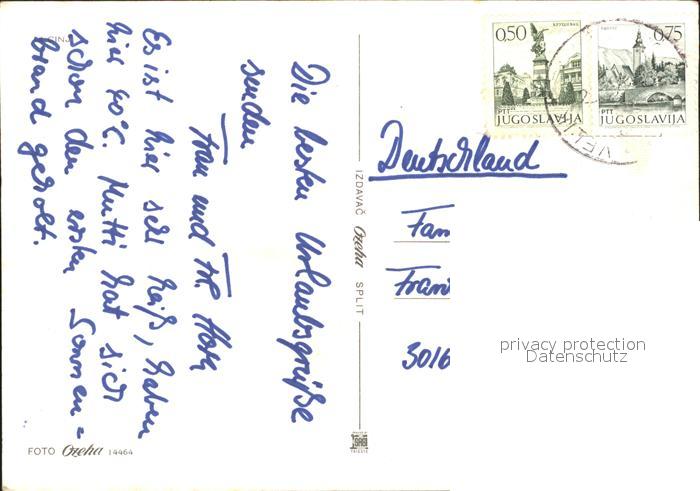 Die besten Urlaubsgrüße
senden
Frau und Frl.
Es ist hier sehr heiß, haben
hier 40°C. Mutti hat sich
schon den ersten Sonnen=
brand geholt.
FOTO Ozeha 14464
IZDAVAČ Ozeha SPLIT
0,50
PTT
JUGOSLAVIJA
0,75
PTT
JUGOSLAVIJA
Deutschland
Fam
3016
privacy protection
Datenschutz